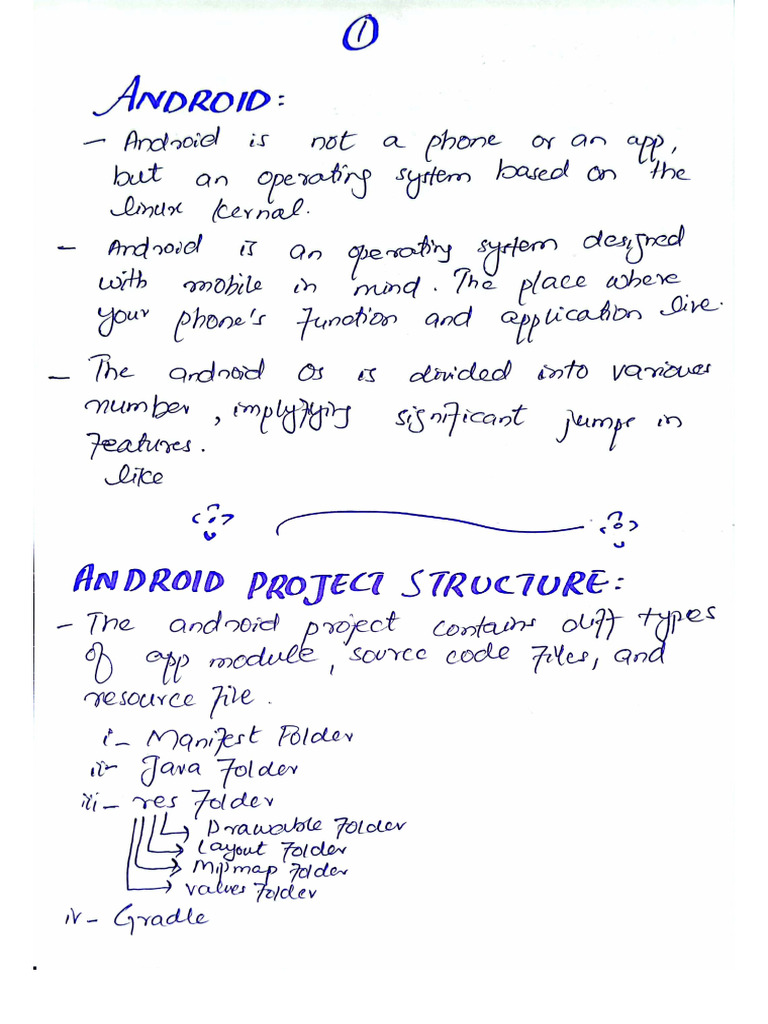 1
ANDROID:
- Android is not a phone or an app,
but an operating system based on the
linux kernal.
- Android is an operating system designed
with mobile in mind. The place where
your phone's function and application live.
- The android Os is divided into various
number, implyfying significant jumps in
features.
like
ANDROID PROJECT STRUCTURE:
- The android project contains diff types
of app module, source code files, and
resource file.
i- Manifest Folder
ii- Java Folder
iii- res Folder
Drawable Folder
Layout Folder
Mipmap Folder
values Folder
iv- Gradle